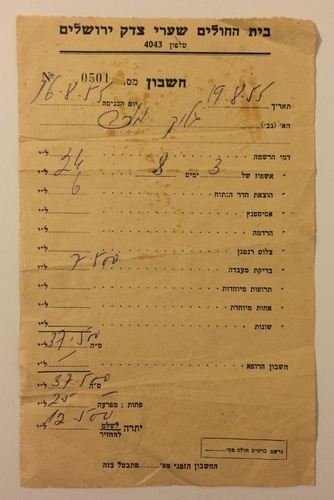 בית החולים שערי צדק ירושלים
טלפון 4043
חשבון מס. 0501 №
תאריך 19.8.55 יום הכניסה 16.8.55
הא׳ (גב׳)
דמי הרשמה ל״י
״ אשפוז של 3 ימים 8 24 ל״י
״ הוצאת חדר הנתוח 6 ל״י
״ אסיסטנץ ל״י
״ הרדמה ל״י
״ צלום רנטגן ל״י
״ בדיקת מעבדה 7.500 ל״י
״ תרופות מיוחדות ל״י
״ אחות מיוחדת ל״י
״ שונות ל״י
ס״ה 37.500 ל״י
חשבון הרופא ל״י
ס״ה 37.500 ל״י
פחות : מפרעה 25 ל״י
יתרה לשלם להחזיר 12.500 ל״י
נרשם כרטיס חולה מס׳
החשבון הזמני מס׳ מתבטל בזה